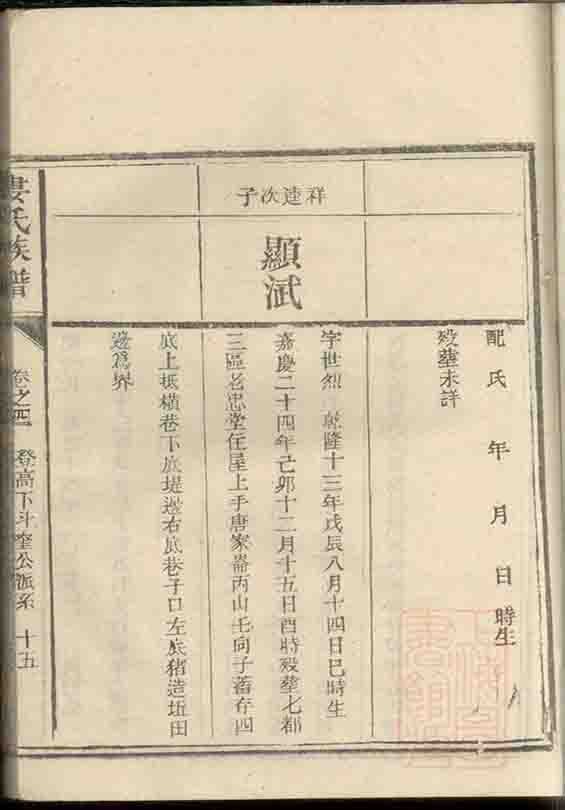 配氏 年 月 日 時生
殁塟未詳
祥達次子
顯斌
字世烈 乾隆十三年戊辰八月十四日巳時生
嘉慶二十四年己卯十二月十五日酉時殁塟七都
三區老忠堂住屋上手唐家崙丙山壬向子蓄存四
底上抵橫巷下底堤邊右底巷子口左底猪造坵田
邊爲界
婁氏族譜
卷之四 登高下斗奎公派系 十五